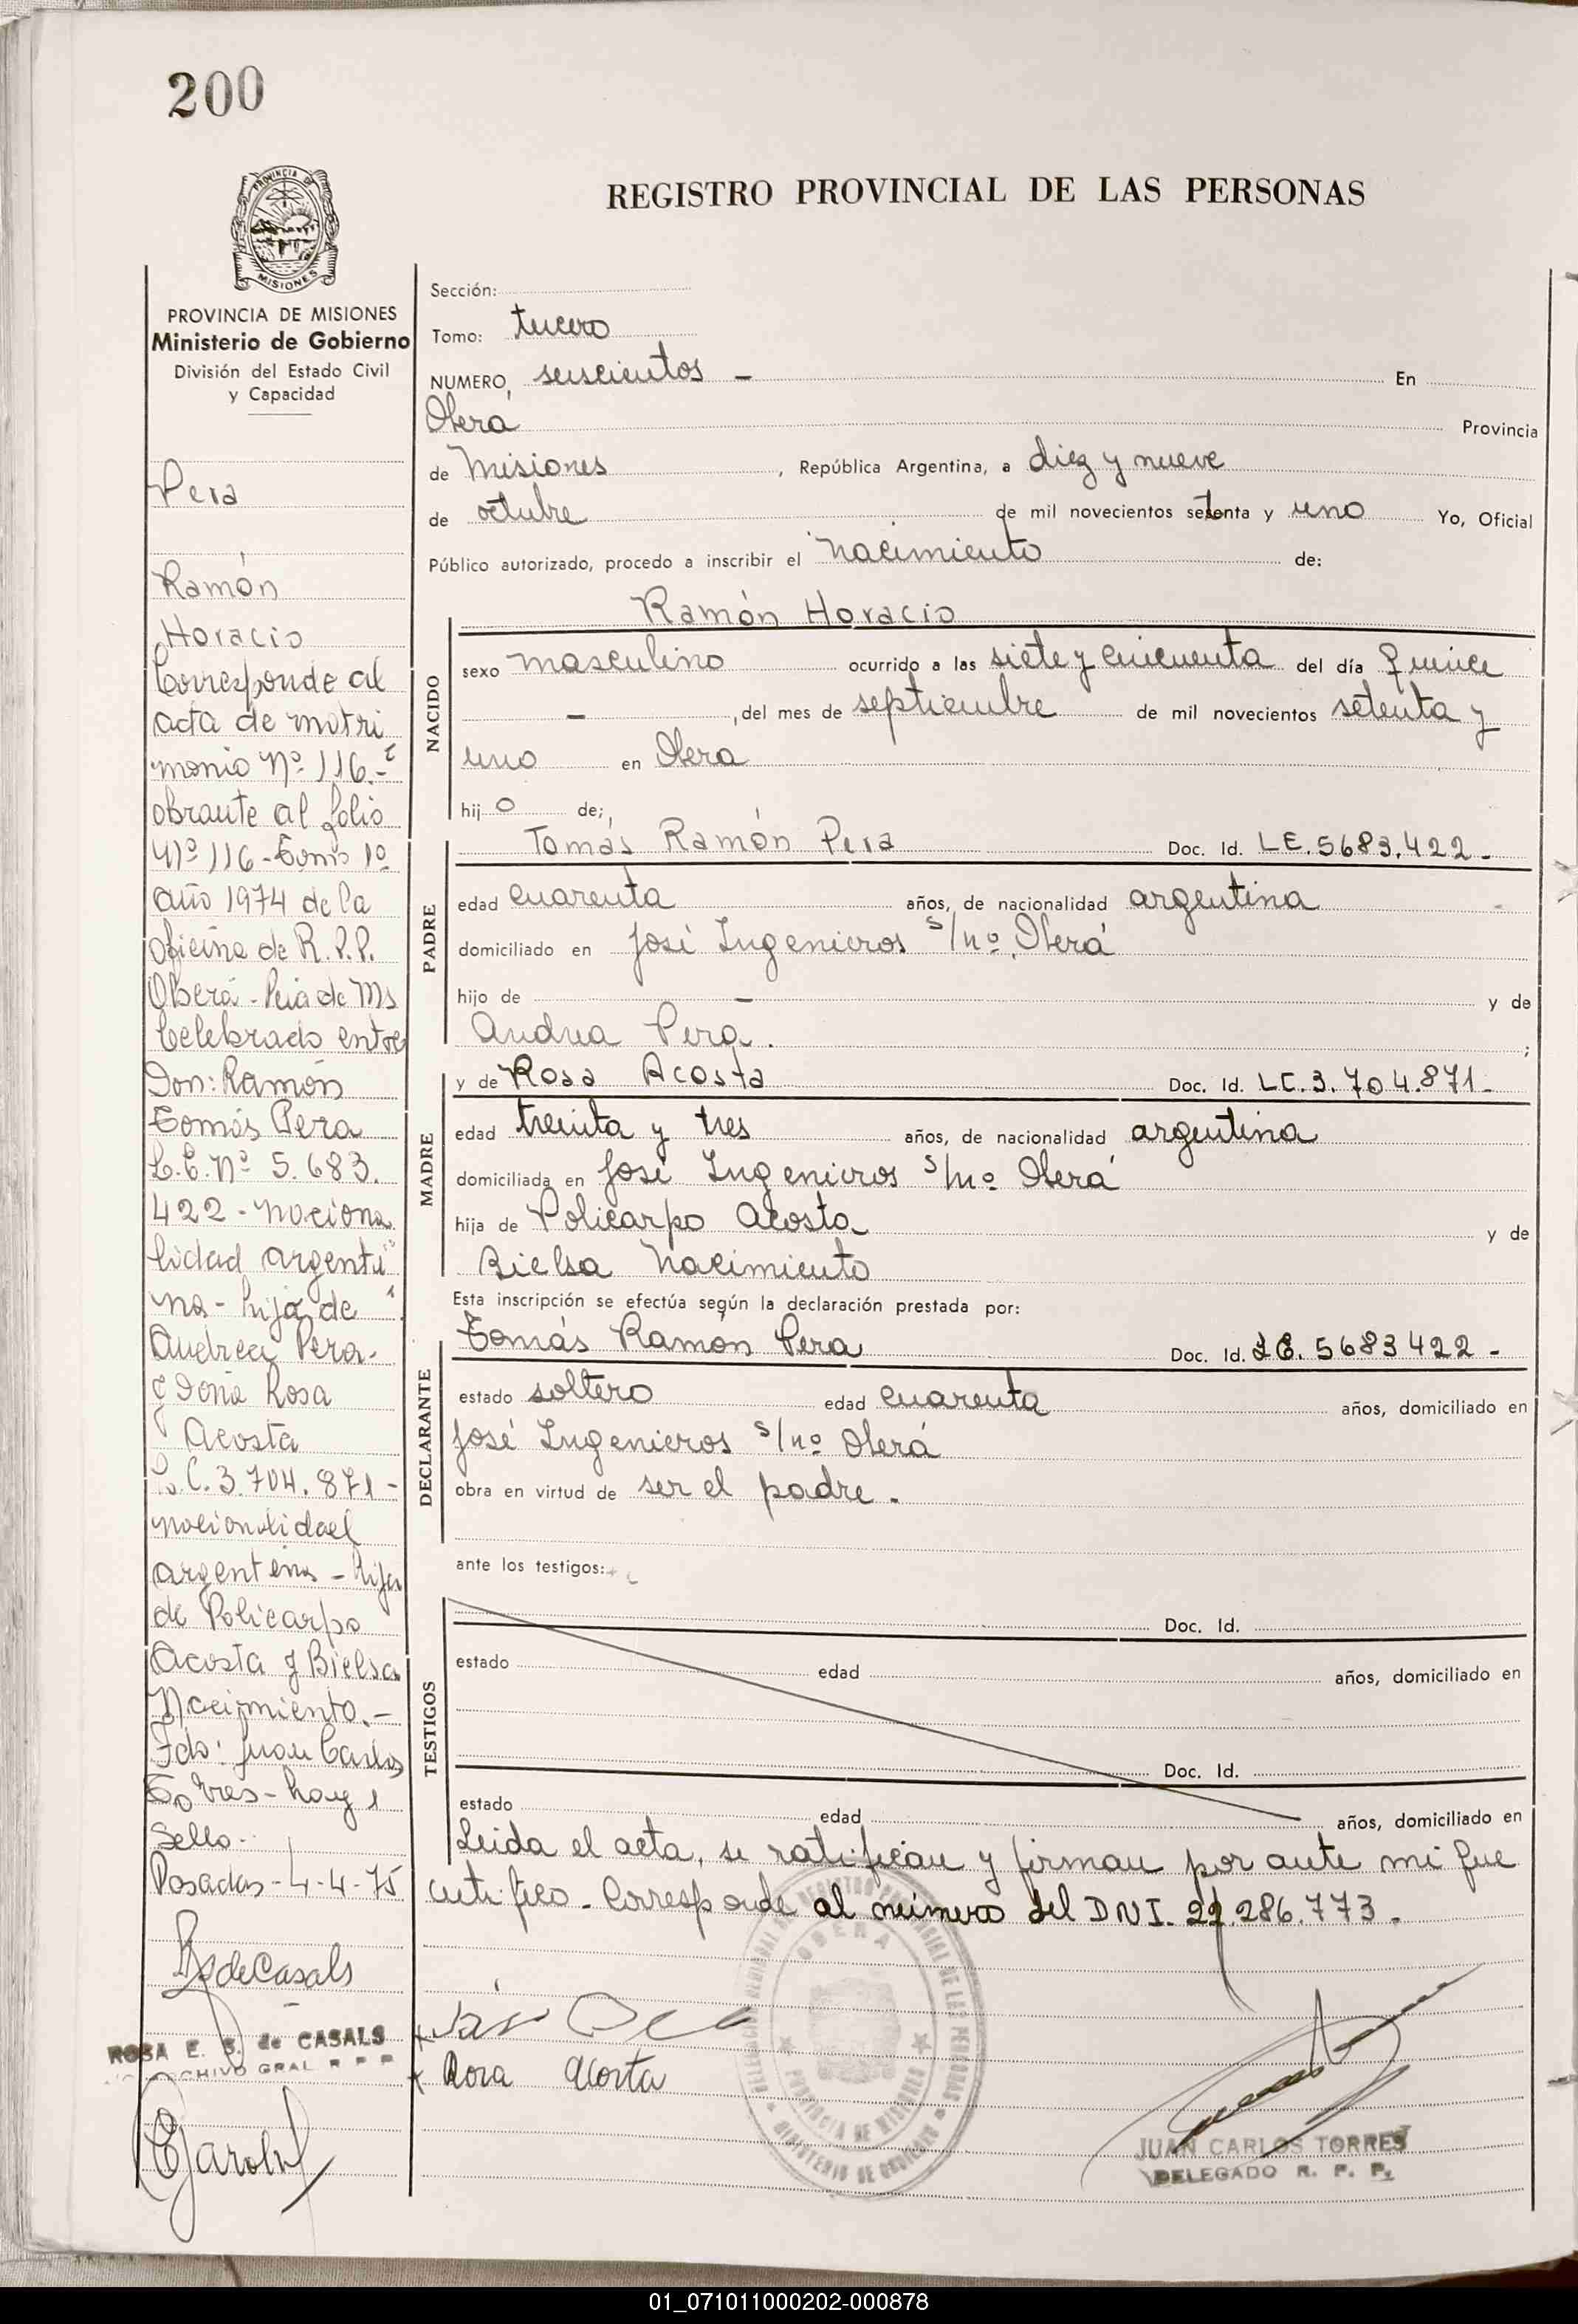 200
PROVINCIA DE
MISIONES
REGISTRO PROVINCIAL DE LAS PERSONAS
PROVINCIA DE MISIONES
Ministerio de Gobierno
División del Estado Civil
y Capacidad
Pera
Ramón
Horacio
Corresponde al
acta de matri
monio Nº 116.-
obrante al folio
Nº 116 - Tomo 1º
año 1974 de la
oficina de R.P.P.
Oberá - Pcia de Ms
Celebrado entre
Don: Ramón
Tomás Pera
L.E. Nº 5.683.
422 - naciona
lidad argenti
na - hijo de
Andrea Pera.
y Doña Rosa
Acosta
L.C. 3.704.871 -
nacionalidad
argentina - hija
de Policarpo
Acosta y Bielsa
Nacimiento.-
Fdo: Juan Carlos
Torres - hay 1
Sello.-
Posadas - 4-4-75
ROSA E. S. de CASALS
ARCHIVO GRAL R P P
Sección:
Tomo: tercero
NUMERO, seiscientos - En
Oberá Provincia
de Misiones, República Argentina, a diez y nueve
de octubre de mil novecientos setenta y uno Yo, Oficial
Público autorizado, procedo a inscribir el nacimiento de:
NACIDO
Ramón Horacio
sexo masculino ocurrido a las siete y cincuenta del día quince
- , del mes de septiembre de mil novecientos setenta y
uno en Oberá
hijo de;
PADRE
Tomás Ramón Pera Doc. Id. L.E. 5683.422 -
edad cuarenta años, de nacionalidad argentina
domiciliado en José Ingenieros s/nº Oberá
hijo de - y de
Andrea Pera. ;
MADRE
y de Rosa Acosta Doc. Id. L.C. 3.704.871-
edad treinta y tres años, de nacionalidad argentina
domiciliada en José Ingenieros s/nº Oberá
hija de Policarpo Acosta y de
Bielsa Nacimiento
Esta inscripción se efectúa según la declaración prestada por:
DECLARANTE
Tomás Ramón Pera Doc. Id. L.E. 5683422 -
estado soltero edad cuarenta años, domiciliado en
José Ingenieros s/nº Oberá
obra en virtud de ser el padre.
ante los testigos:
TESTIGOS
Doc. Id.
estado edad años, domiciliado en
Doc. Id.
estado edad años, domiciliado en
Leida el acta, se ratifican y firman por ante mi que
certifico. Corresponde al número del DNI. 22.286.773.
Rosa Acosta
OBERA
PROVINCIA DE MISIONES
MINISTERIO DE GOBIERNO
JUAN CARLOS TORRES
DELEGADO R. P. P.
01_071011000202-000878